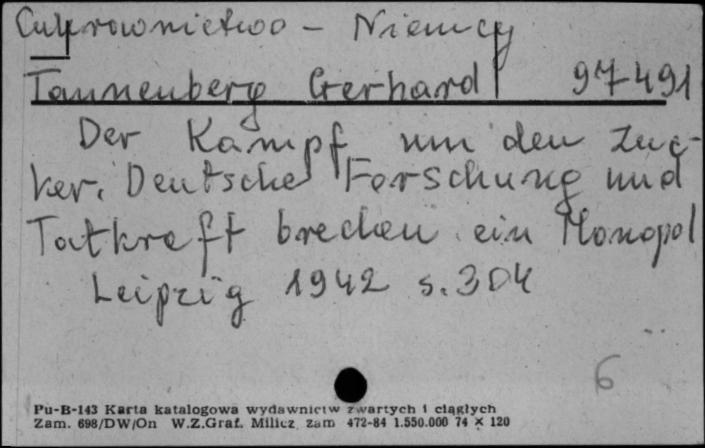 Cukrownictwo - Niemcy
Tannenberg Gerhard 97491
Der Kampf um den Zuc-
ker. Deutsche Forschung und
Tatkraft brechen ein Monopol
Leipzig 1942 s. 304
6
Pu-B-143 Karta katalogowa wydawnictw zwartych i ciągłych
Zam. 698/DW/On W.Z.Graf. Milicz zam 472-84 1.550.000 74 × 120